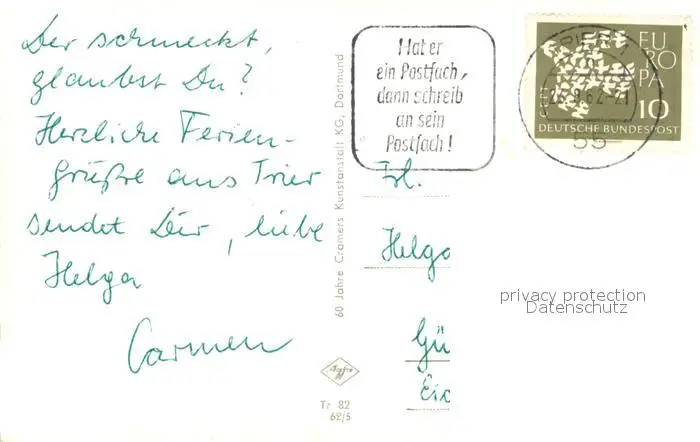 Der schmeckt,
glaubst Du?
Herzliche Ferien-
grüße aus Trier
sendet Dir, liebe
Helga
Carmen
60 Jahre Cramers Kunstanstalt KG, Dortmund
Agfa
Tr 82
62/5
Hat er
ein Postfach,
dann schreib
an sein
Postfach!
EUROPA
10
DEUTSCHE BUNDESPOST
55
Frl.
Helga
Gü
Eic
privacy protection
Datenschutz